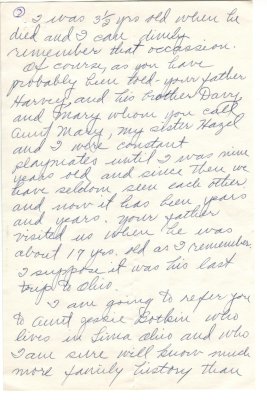 ②
I was 3½ yrs old when he
died and I can dimly
remember that occassion.
Of course, as you have
probably been told - your father
Harvey, and his brother Davy
and Mary whom you call
Aunt Mary, my sister Hazel
and I were constant
playmates until I was nine
years old, and since then we
have seldom seen each other
and now it has been years
and years. Your father
visited us when he was
about 17 yrs. old as I remember.
I suppose it was his last
trip to Ohio.
I am going to refer you
to Aunt Jessie Botkin who
lives in Lima Ohio and who
I am sure will know much
more family history than